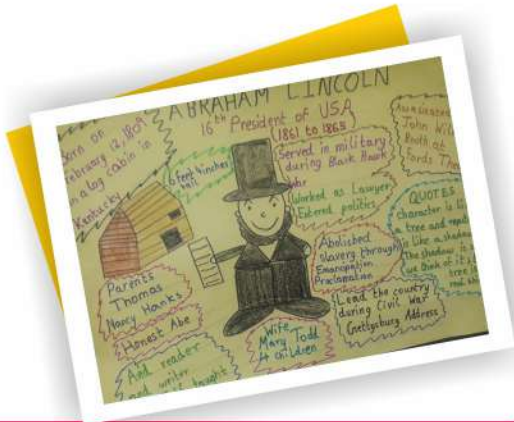 ABRAHAM LINCOLN
16th President of USA
(1861 to 1865)
Born on
February 12, 1809
in a log cabin in
Kentucky
6 feet 4 inches
tall
Served in military
during Black Hawk
war
Worked as Lawyer,
Entered politics
Assassinated
John Wil
Booth at
Fords The
QUOTES
character is li
a tree and repu
is like a shadow
The shadow is
we think of it
tree is
real
Abolished
slavery through
Emancipation
Proclamation
Lead the country
during Civil War
Gettysburg Address
Parents
Thomas
Nancy Hanks
Honest Abe
Avid reader
and writer
taught
Wife
Mary Todd
4 children